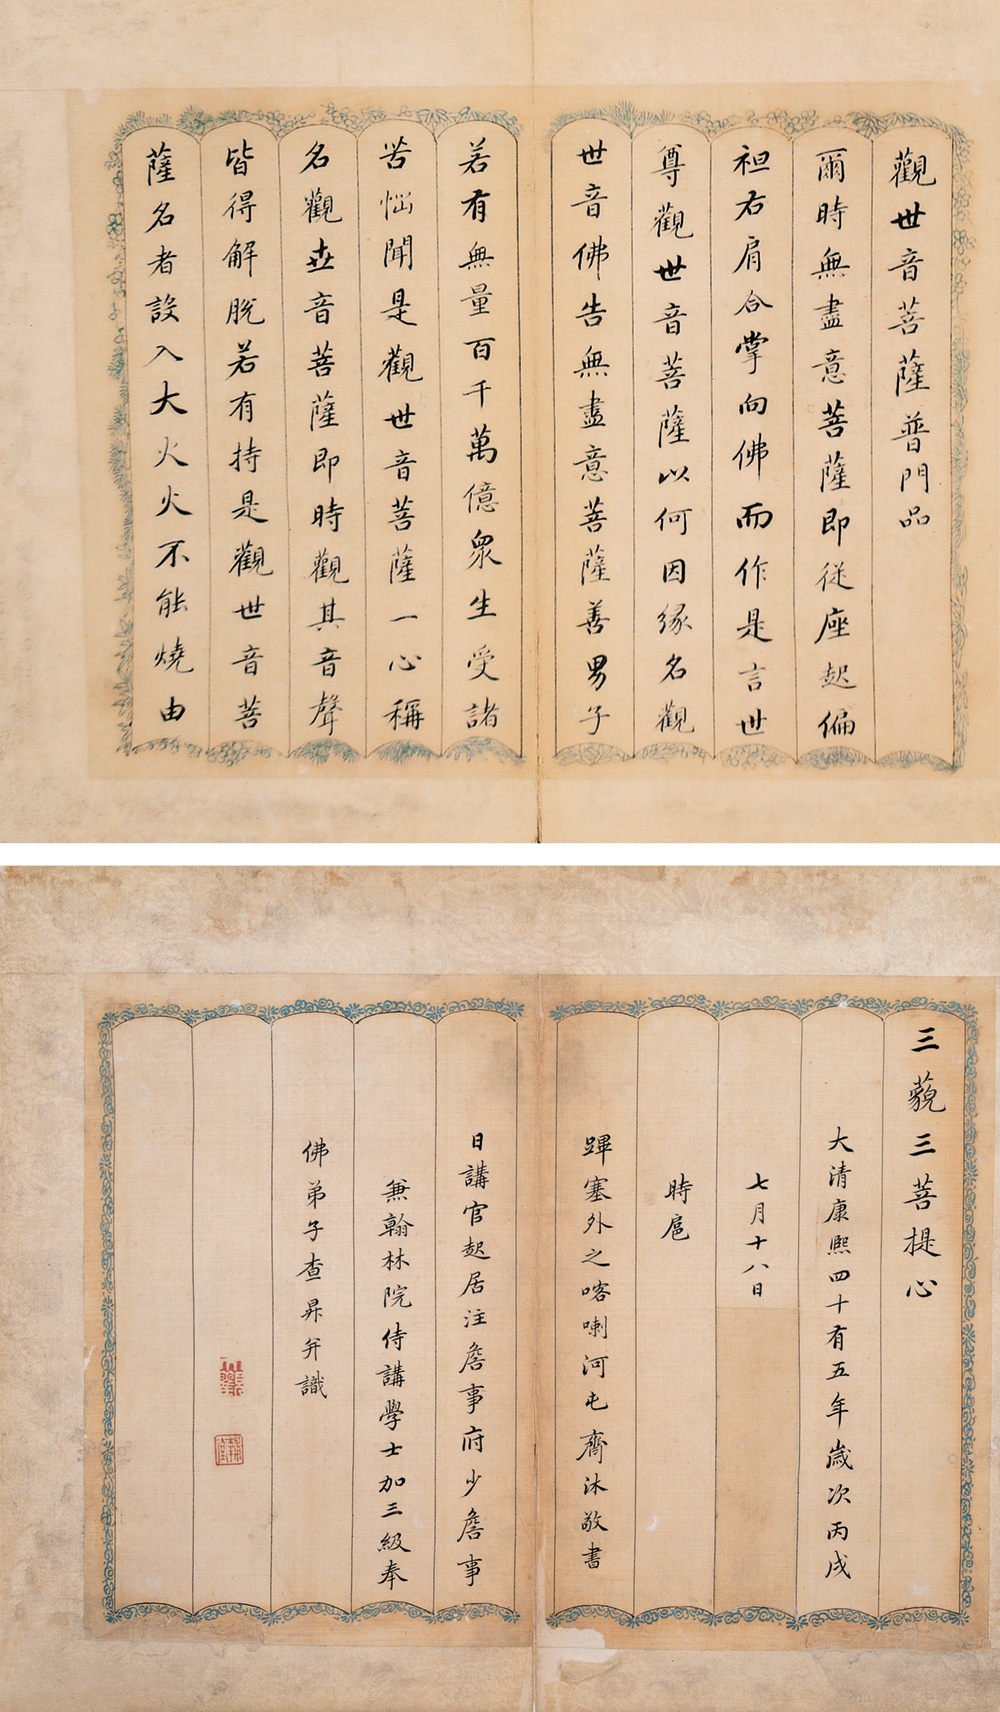 觀世音菩薩普門品
爾時無盡意菩薩即從座起偏
袒右肩合掌向佛而作是言世
尊觀世音菩薩以何因緣名觀
世音佛告無盡意菩薩善男子
若有無量百千萬億眾生受諸
苦惱聞是觀世音菩薩一心稱
名觀世音菩薩即時觀其音聲
皆得解脫若有持是觀世音菩
薩名者設入大火火不能燒由
三藐三菩提心
大清康熙四十有五年歲次丙戌
七月十八日
時扈
蹕塞外之喀喇河屯齋沐敬書
日講官起居注詹事府少詹事
兼翰林院侍講學士加三級奉
佛弟子查昇并識